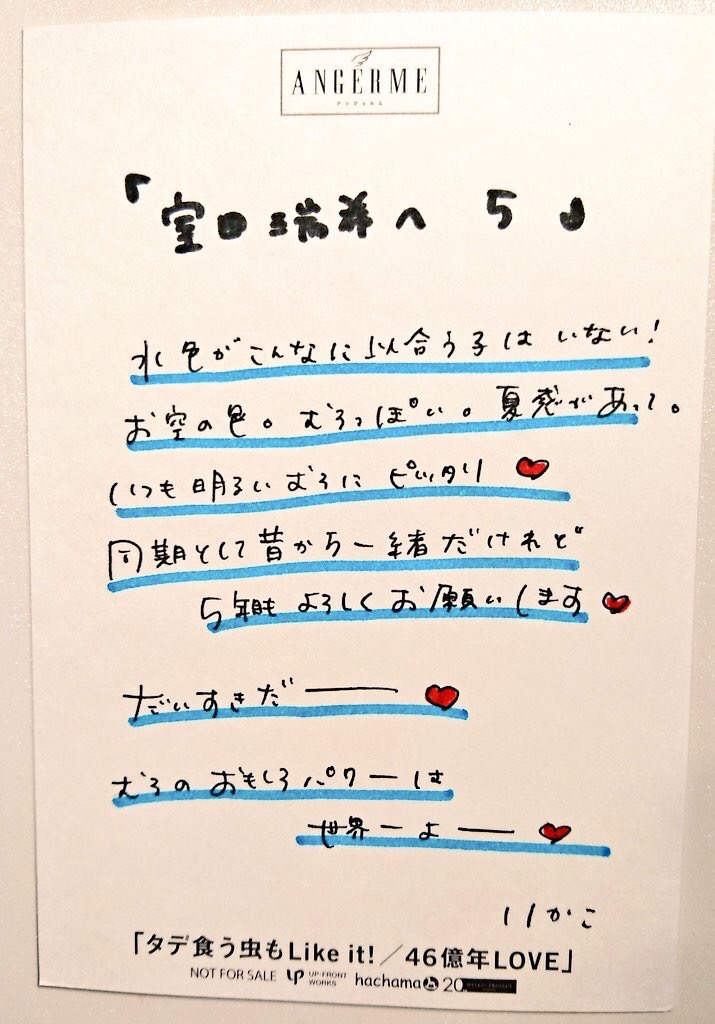 ANGERME
アンジュルム
「室田瑞希へ 5」
水色がこんなに似合う子はいない!
お空の色。むろっぽい。夏感があって。
いつも明るいむろにピッタリ
同期として昔から一緒だけれど
5年目もよろしくお願いします
だいすきだー
むろのおもしろパワーは
世界一よー
りかこ
「タデ食う虫もLike it!/46億年LOVE」
NOT FOR SALE UP UP-FRONT WORKS hachama 20